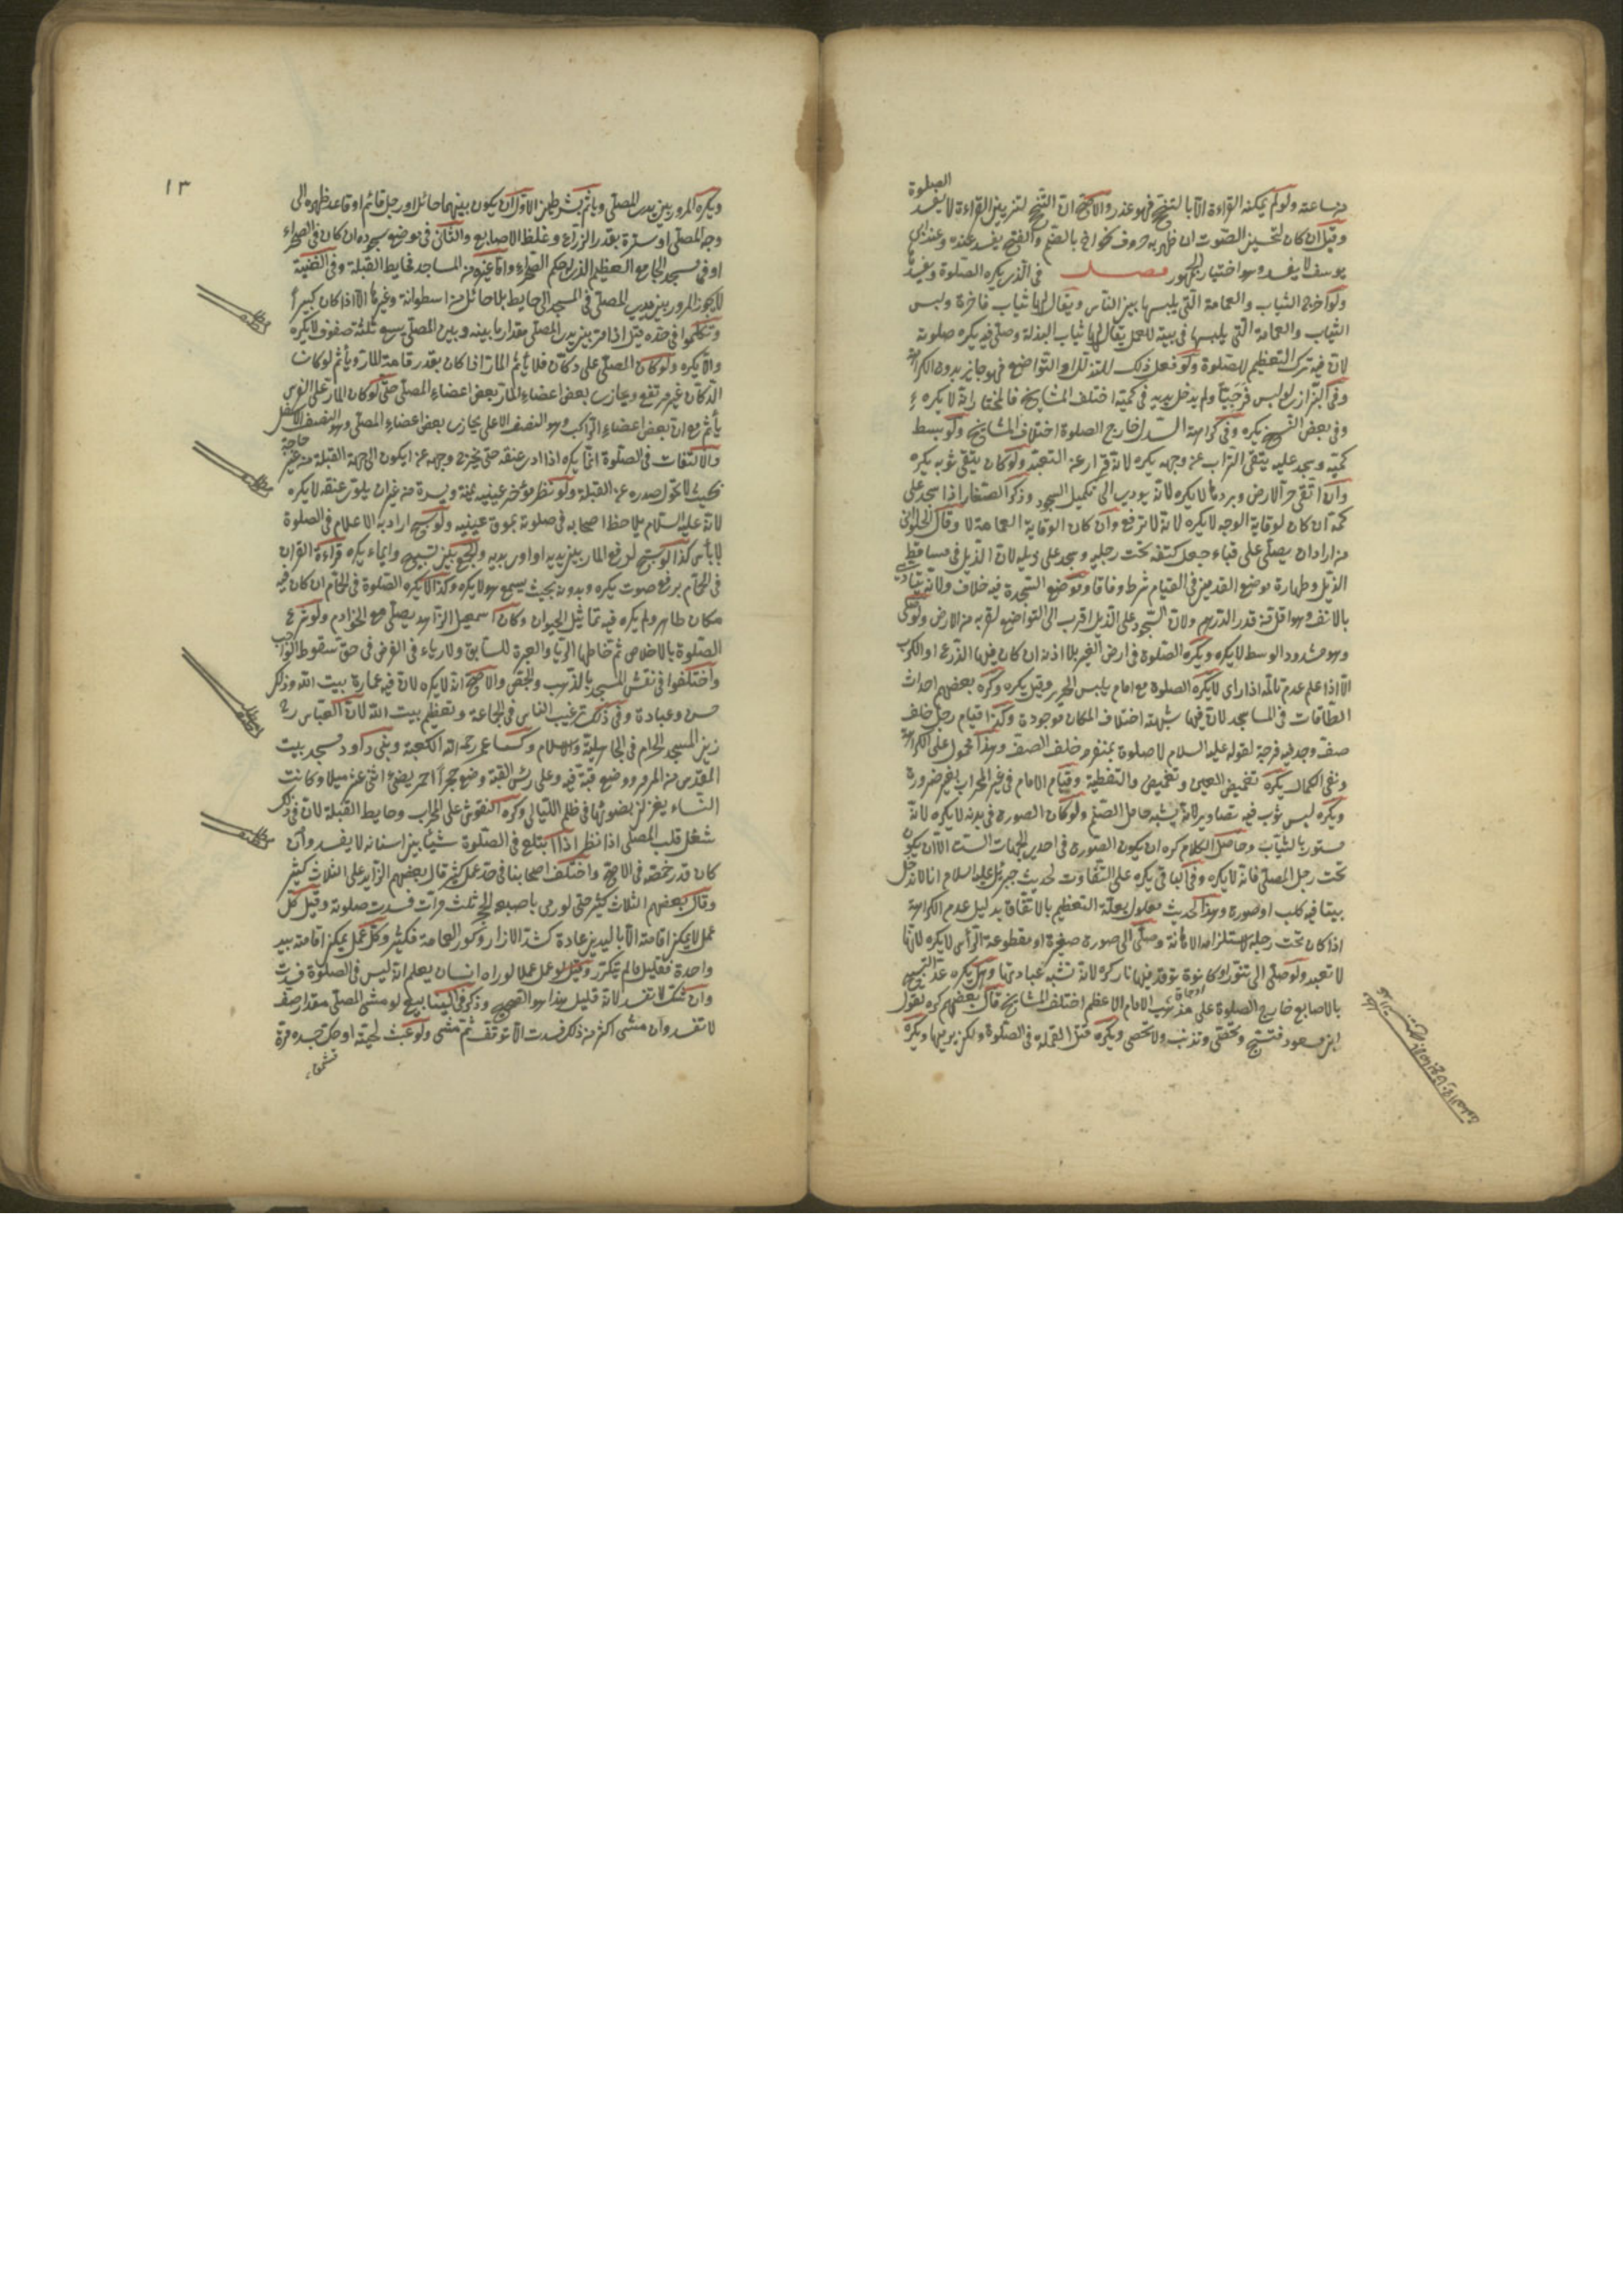 من ساعته ولو لم يمكنه القراءة الا بالتنحنح فهو عذر والاصح ان التنحنح لتزيين القراءة لا يفسد الصلوة
وقيل ان كان لتحسين الصوت ان ظهر به حروف نحو اخ بالضم والفتح يفسد عنده وعند ابي
يوسف لا يفسد وهو اختيار الجمهور فصل في الذي يكره الصلوة ويفسد
ولو اخرج الثياب والعمامة التي يلبسها بين الناس ويقال لها ثياب فاخرة ولبس
الثياب والعمامة التي يلبسها في بيته للعمل يقال لها ثياب البذلة وصلى فيه يكره صلوته
لان فيه ترك التعظيم للصلوة ولو فعل ذلك للتذلل او التواضع فهو جائز بدون الكراهة
وفي البزازي لو لبس فرجيا ولم يدخل يديه في كميه اختلف المشايخ فالمختار انه لا يكره
وفي بعض النسخ يكره وفي كراهة السدل خارج الصلوة اختلاف المشايخ ولو بسط
كميه وسجد عليه يتقي التراب عن وجهه يكره لانه قرار عن التعبد ولو كان يتقي ثوبه يكره
وان اتقى حر الارض وبردها لا يكره لانه يودي الى تكميل السجود وذكر الصفار اذا سجد على
كمه ان كان لوقاية الوجه لا يكره لانه لا ترفع وان كان الوقاية العمامة لا وقال الحلواني
من اراد ان يصلي على قباء جعل كتفه تحت رجليه وسجد على ذيله لان الذيل في مساقط
الذيل وطهارة موضع القدمين في القيام شرط وفاقا وموضع السجدة فيه خلاف ولانه يتادى
بالانف وهو اقل من قدر الدرهم ولان السجود على الذيل اقرب الى التواضع لقربه من الارض ولو صلى
وهو مشدود الوسط لا يكره ويكره الصلوة في ارض الغير بلا اذنه ان كان فيها الزرع او الكرب
الا اذا علم عدم تالمه اذا راى لا يكره الصلوة مع امام يلبس الحرير وقيل يكره وكره بعضهم احداث
الطاقات في المساجد لان فيها شبهة اختلاف المكان موجودة وكذا قيام رجل خلف
صف وجد فيه فرجة لقوله عليه السلام لا صلوة بمنفرد خلف الصف وهذا محمول على الكراهة
ونفي الكمال يكره تغميض العين والتغطية وقيام الامام في غير المحراب بغير ضرورة
ويكره لبس ثوب فيه تصاوير لانه يشبه حامل الصنم ولو كان الصورة في بدنه لا يكره لانه
مستور بالثياب وحاصل الكلام كره ان يكون الصورة في احدى الجهات الست الا ان يكون
تحت رجل المصلي فانه لا يكره وفي الباقي يكره على التفاوت لحديث جبرئيل عليه السلام انا لا ندخل
بيتا فيه كلب او صورة وهذا الحديث معلول بعلة التعظيم بالاتفاق بدليل عدم الكراهة
اذا كان تحت رجليه لاستلزامه الاهانة وصلى الى صورة صغيرة او مقطوعة الرأس لا يكره لانها
لا تعبد ولو صلى الى تنور او كانون توقد فيها نار كره لانه تشبه عبادتها وهل يكره عد التسبيح
بالاصابع خارج الصلوة على مذهب الامام الاعظم اختلف المشايخ قال بعضهم كره لقول
ابن مسعود وتحصى وتذنب ولا تحصى ويكره قتل القملة في الصلوة ولكن يرميها ويكره
١٣
ويكره المرور بين يدي المصلي وياثم بشرطين الاول ان يكون بينهما حائل او رجل قائم او قاعد ظهره الى
وجه المصلي او سترة بقدر الذراع وغلظ الاصابع والثاني في موضع سجوده ان كان في الصحراء
او في مسجد الجامع العظيم الذي له حكم الصحراء واما غيره من المساجد فحايط القبلة وفي القنية
لا يجوز المرور بين يدي المصلي في المسجد الى حايط بلا حائل من اسطوانة وغيرها الا اذا كان كبيرا
وتكلموا في حده قيل اذا مر بين يدي المصلي مقدار ما بينه وبين المصلي يسع ثلثة صفوف لا يكره
والا يكره ولو كان المصلي على دكان فلا ياثم المار اذا كان بقدر قامة المار وياثم لو كان
الدكان غير مرتفع ويحازى بعض اعضاء المار بعض اعضاء المصلي حتى لو كان المار على الفرس
يأثم مع ان بعض اعضاء الراكب وهو النصف الاعلى يحازى بعض اعضاء المصلي وهو النصف الاسفل
والالتفات في الصلوة انما يكره اذا ادر عنقه حتى يخرج وجهه عن ان يكون الى جهة القبلة من غير حاجة
بحيث لا تحول صدره عن القبلة ولو نظر مؤخر عينيه يمنة ويسرة من غير ان يلوى عنقه لا يكره
لانه عليه السلام يلاحظ اصحابه في صلوته بموق عينيه ولو سبح اراد به الاعلام في الصلوة
لا بأس كذا لو سبح لدفع المار بين يديه او اومى بيديه والجمع بين تسبيح وايماء يكره قراءة القران
في الحمام برفع صوت يكره وبدونه بحيث يسمع هو لا يكره وكذا لا يكره الصلوة في الحمام ان كان فيه
مكان طاهر ولم يكره فيه تماثيل الحيوان وكان اسمعيل الزاهد يصلي مع الخوادم ولو شرع
الصلوة بالاخلاص ثم خالطها الريا والعبرة للسابق ولا رياء في الفرض في حق سقوط الواجب
واختلفوا في نقش المسجد بالذهب والجص والاصح انه لا يكره لان فيه عمارة بيت الله وذلك
حسن وعبادة وفي ذلك ترغيب الناس في الجماعة وتعظيم بيت الله لان العباس رضى
زين المسجد الحرام في الجاهلية والاسلام وكسا عمر رحمه الله الكعبة وبنى داود مسجد بيت
المقدس من المرمر ووضع قبة فيه وعلى رأس القبة وضع حجرا احمر يضئ اثنى عشر ميلا وكانت
النساء يغزلن بضوئها في ظلم الليالي وكره النقوش على المحراب وحايط القبلة لان في ذلك
شغل قلب المصلي اذا نظر اذا ابتلع في الصلوة شيئا بين اسنانه لا يفسد وان
كان قدر حمصه في الاصح واختلف اصحابنا في حد عمل كثير قال بعضهم الزايد على الثلاث كثير
وقال بعضهم الثلاث كثير حتى لو رمى باصبعه ثلث مرات فسدت صلوته وقيل كل
عمل لا يمكن اقامته الا باليدين عادة كشد الازار وكور العمامة فكثير وكل عمل يمكن اقامته بيد
واحدة فقليل ما لم يتكرر وقيل لو عمل عملا لو راه انسان يعلم انه ليس في الصلوة فسدت
وان شك لا تفسد لانه قليل هذا هو الصحيح وذكر في الينابيع لو مشى المصلي مقدار صف
لا تفسد وان مشى اكثر من ذلك فسدت الا توقف ثم مشى ولو عبث لحيته او حك جسده مرة